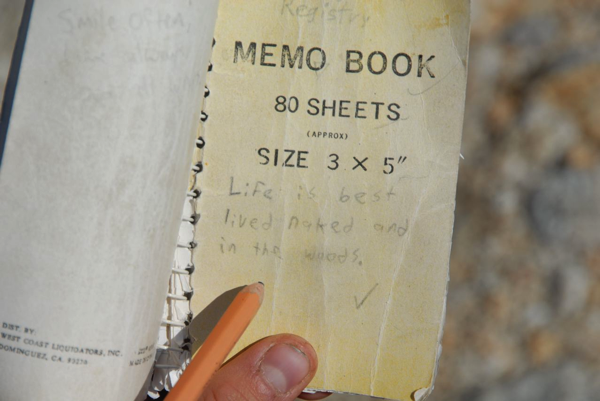 Smile Often,
DIST. BY:
WEST COAST LIQUIDATORS, INC.
DOMINGUEZ, CA.
Registry
MEMO BOOK
80 SHEETS
(APPROX)
SIZE 3 × 5″
Life is best
lived naked and
in the woods.